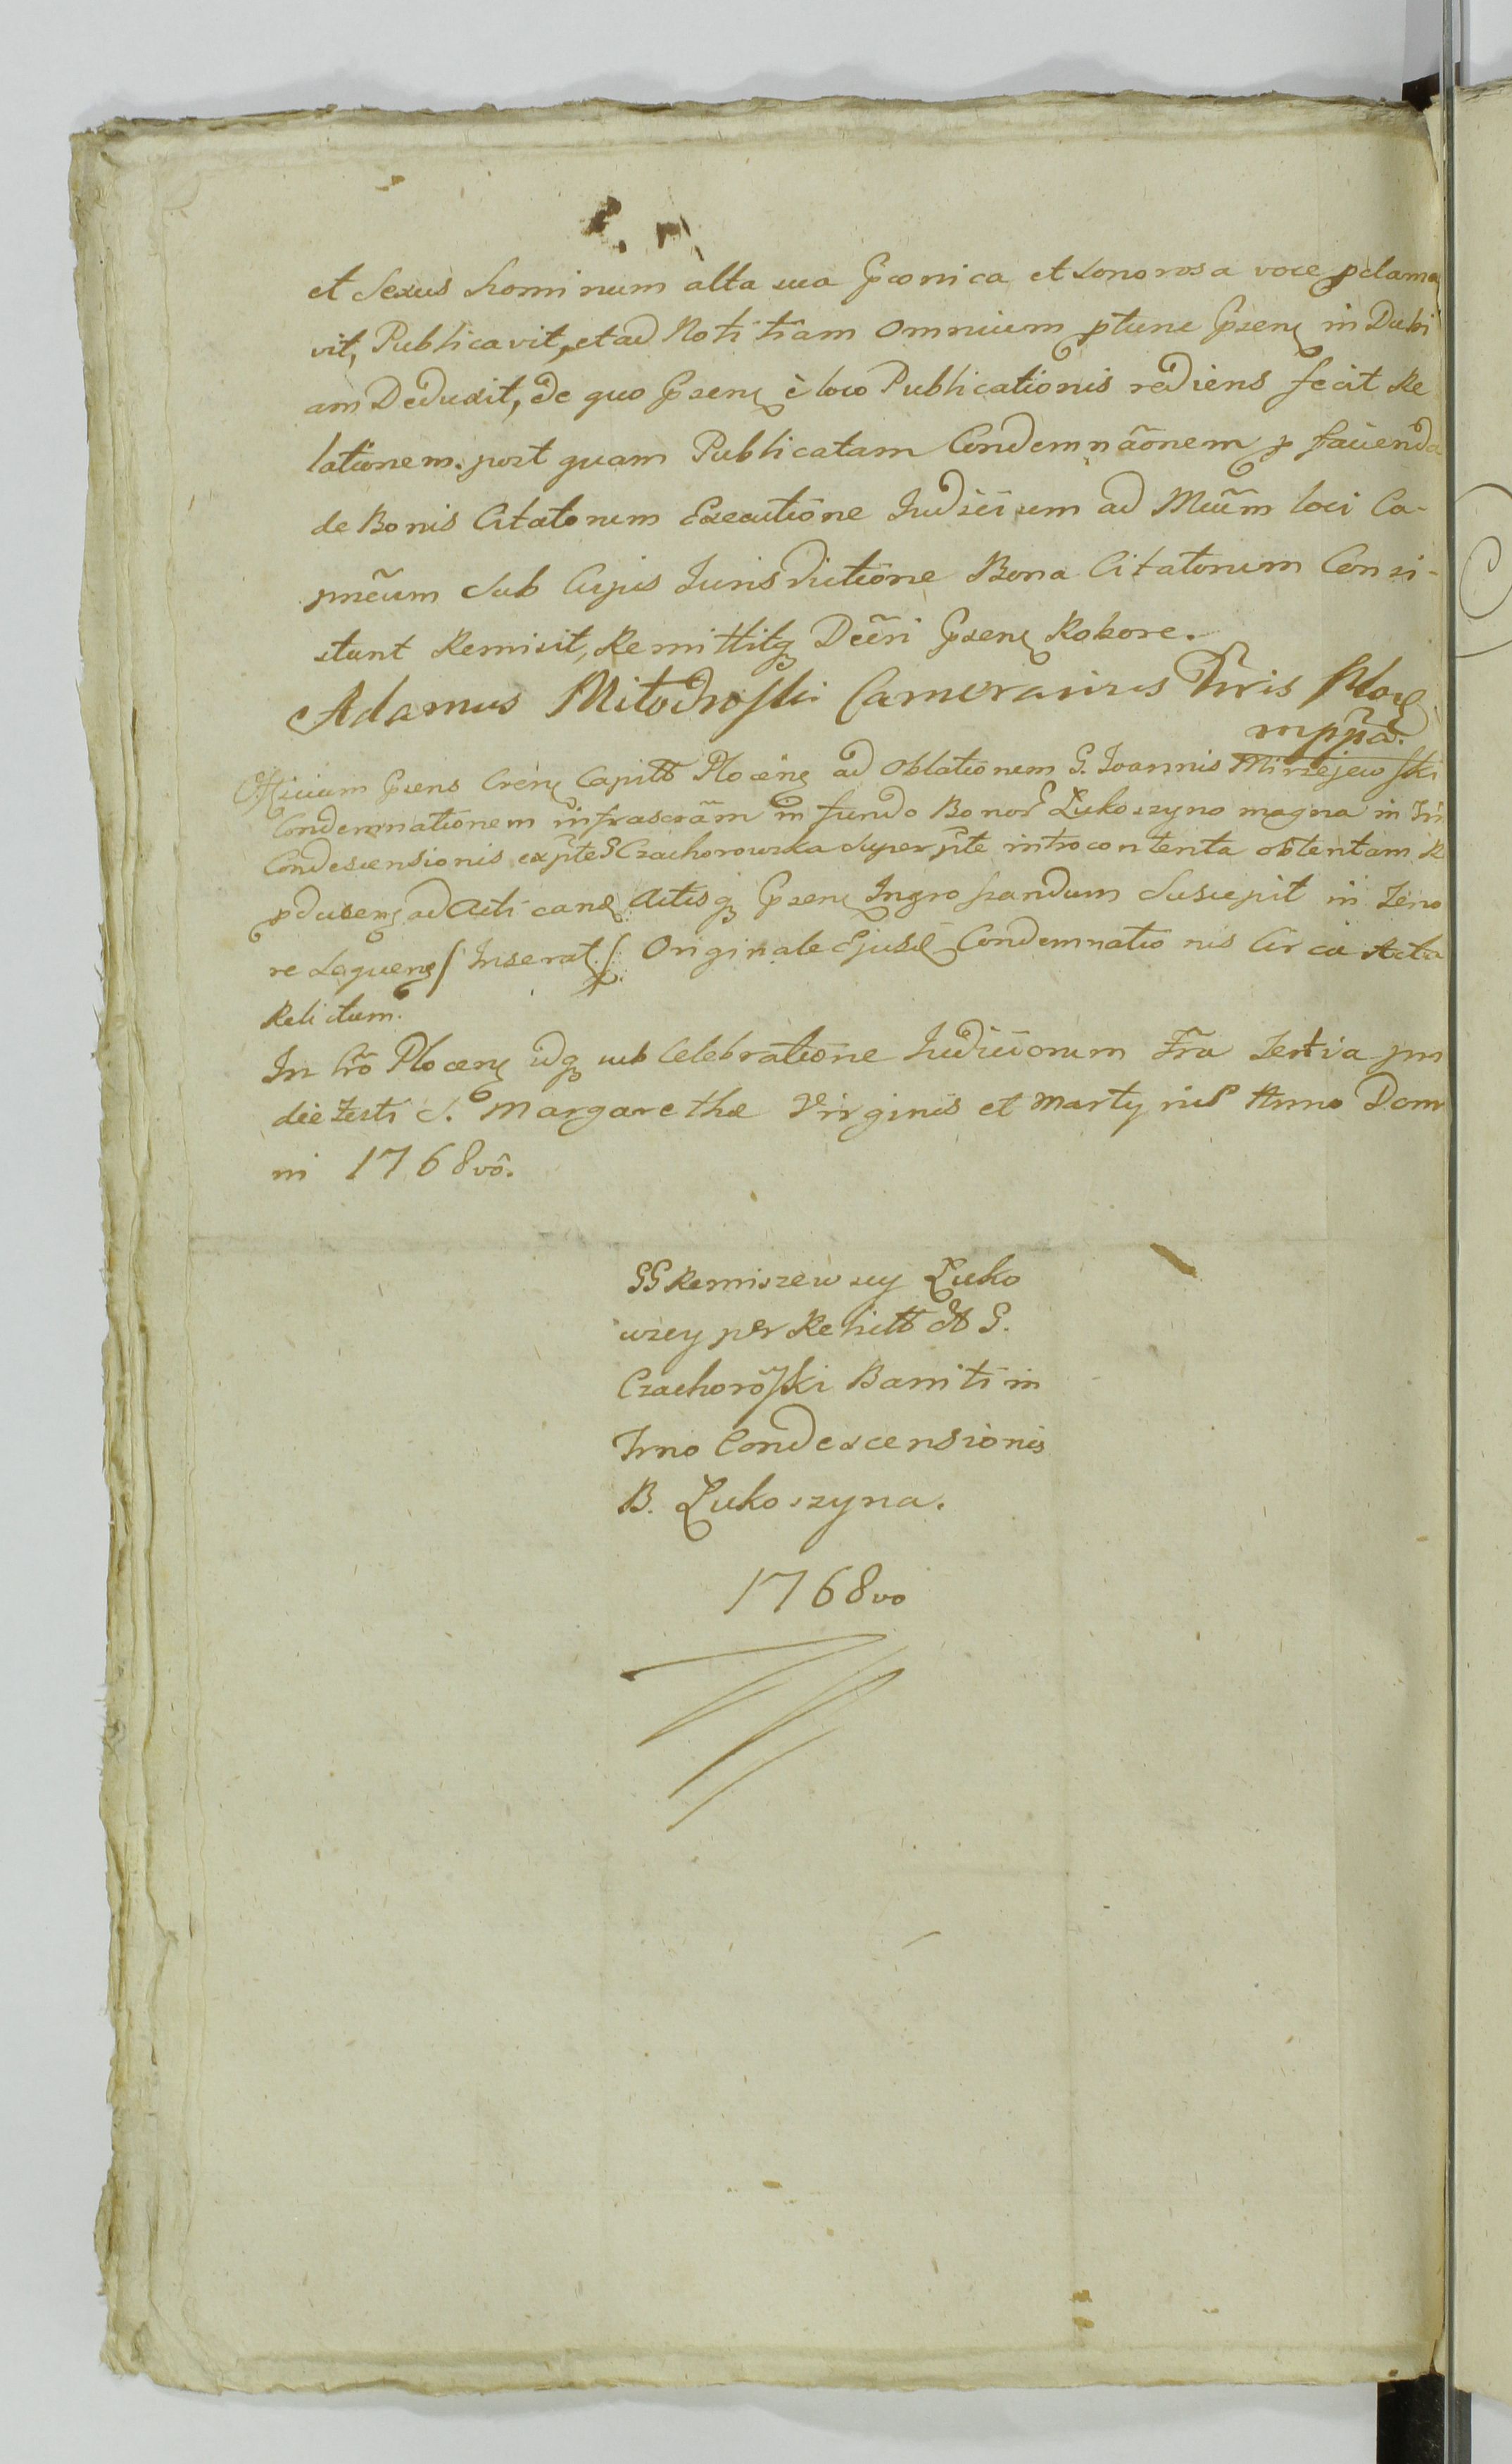 et Sexus hominum alta sua Praeonica et sonorosa voce pclama
vit, Publicavit, et ad Notitiam omnium ptunc Psenɣ in Dubi
am Deduxit, de quo Psenɣ è loco Publicationis rediens fecit Re
lationem. post quam Publicatam Condemnãonem p faciendã
de Bonis Citatorum Executione Judicium ad Mũm loci Ca-
pnẽum Sub Cujus Jurisdictione Bona Citatorum Consi-
stunt Remisit, Remittitqꝫ Decẽri Psenɣ Robore.
Adamus Mitodroski Camerarius Trris Ploc
mppa.
Officium Psens Crenɣ Capitt Plocenɣ ad Oblationem G. Joannis Mirzejewski
Condemnationem infrascrãm in fundo Bonor Łukoszyno magna in Tri
Condescensionis ex pte G Czachorowska Super pte introcontenta obtentam R
pducenɣ ad Acticand Actisqꝫ Psenɣ Ingrossandum Suscepit in Teno
re Sequenɣ / Inserat / Originale Ejusd Condemnationis Circa Acta
Relictum.
In Crõ Plocenɣ idqꝫ sub Celebratione Judiciorum Frã Tertia pri
die Festi S. Margarethæ Virginis et Martyris Anno Domi
ni 1768vô.
GG Remiszewscy Łuko
wscy per Rehitt A G.
Czachorôski Banniti in
Trno Condescensionis
B. Łukoszyna.
1768vo